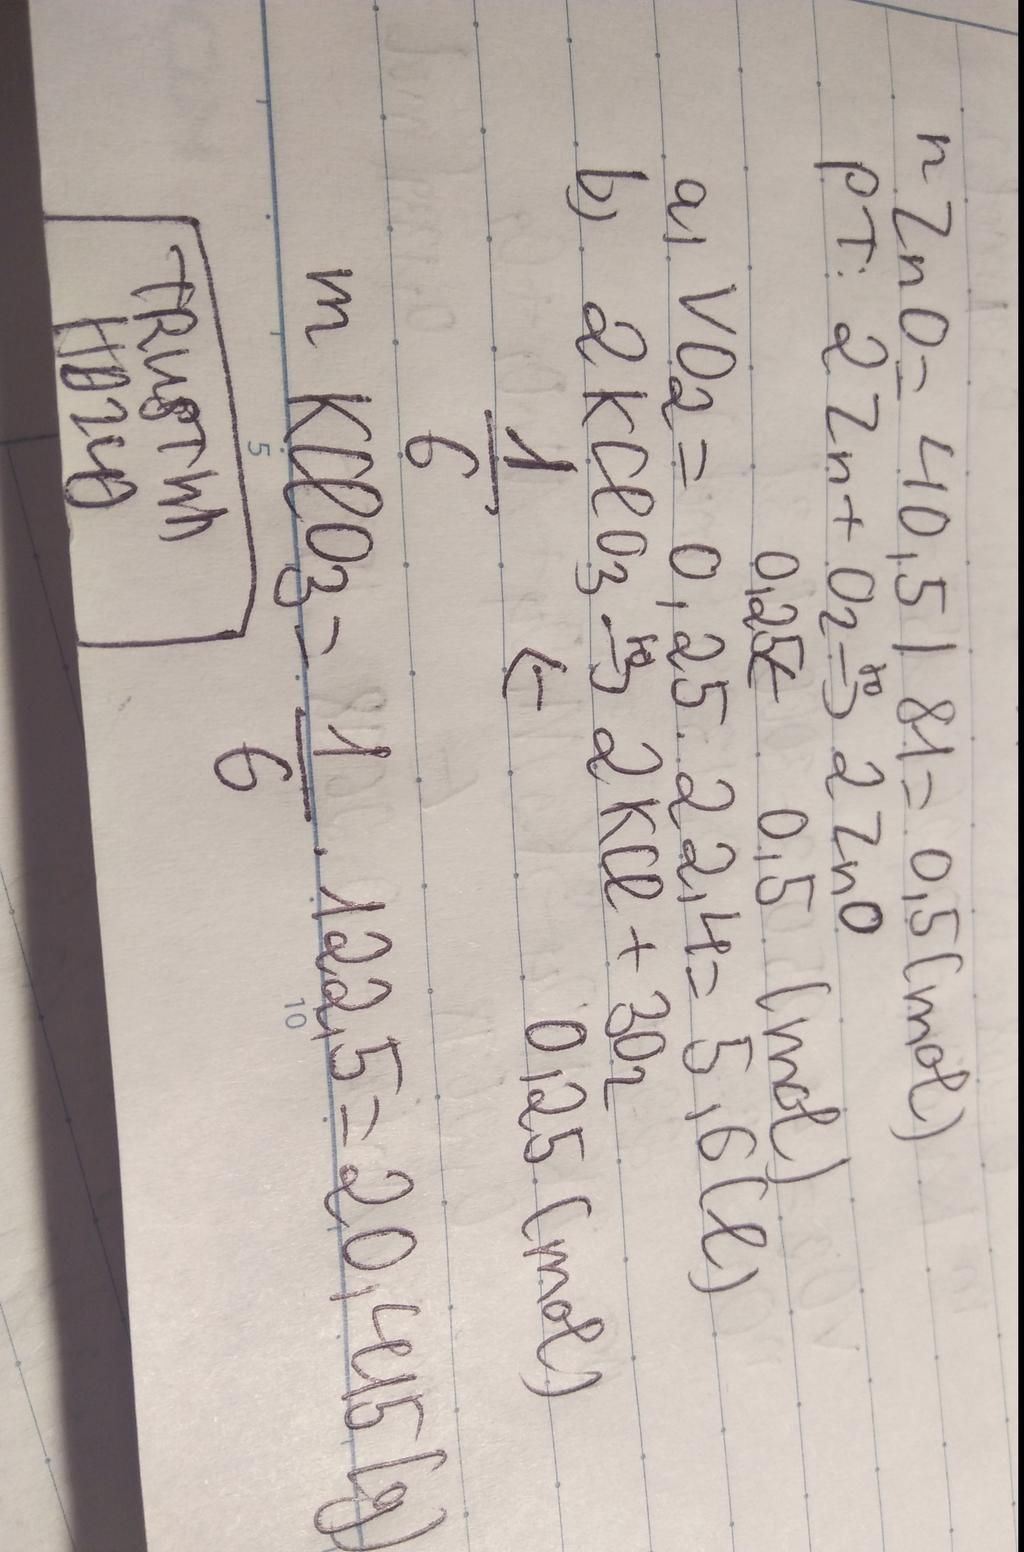 n ZnO = 40,5 / 81 = 0,5 (mol)
PT: 2Zn + O2 -to-> 2ZnO
0,25 ← 0,5 (mol)
a, VO2 = 0,25. 22,4 = 5,6 (l)
b, 2KClO3 -to-> 2KCl + 3O2
1/6 ← 0,25 (mol)
m KClO3 = 1/6 . 122,5 = 20,415 (g)
5
10